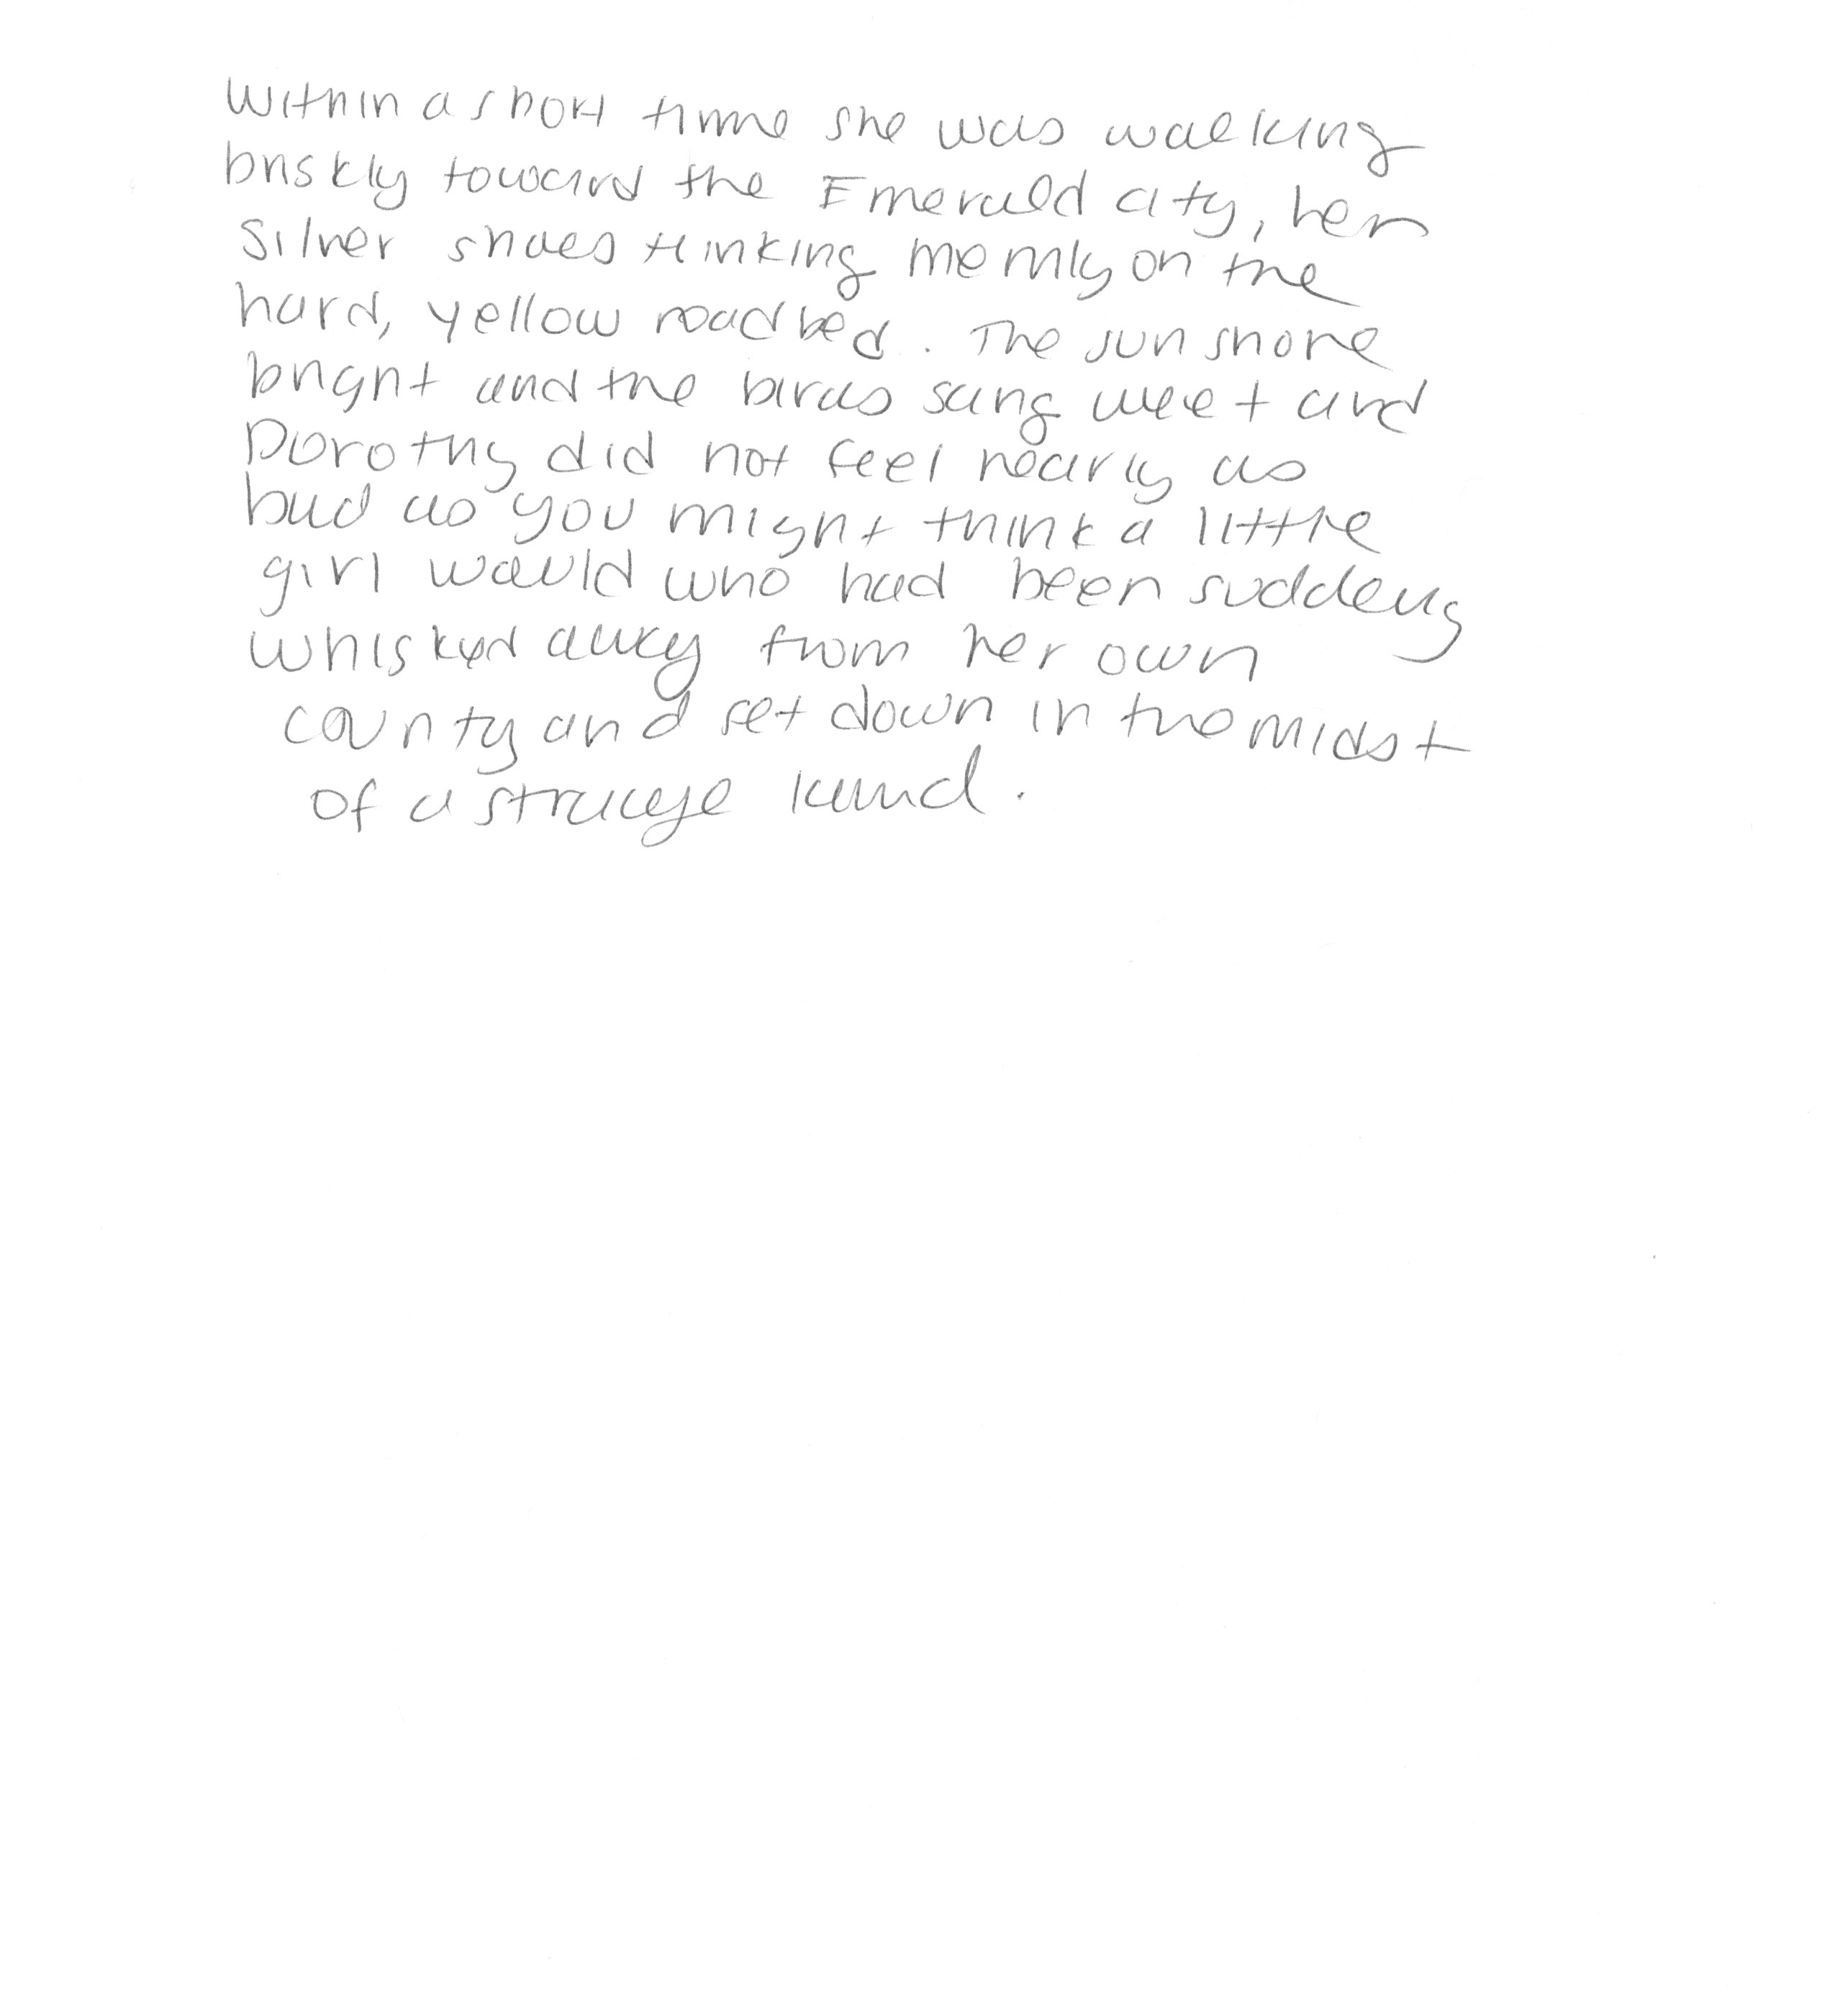 Within a short time she was walking
briskly toward the Emerald city, her
silver shoes tinking merrily on the
hard, yellow roadbed. The sun shone
bright and the birds sang sweet and
Dorothy did not feel nearly as
bad as you might think a little
girl would who had been suddenly
whisked away from her own
county and set down in the midst
of a strange land.